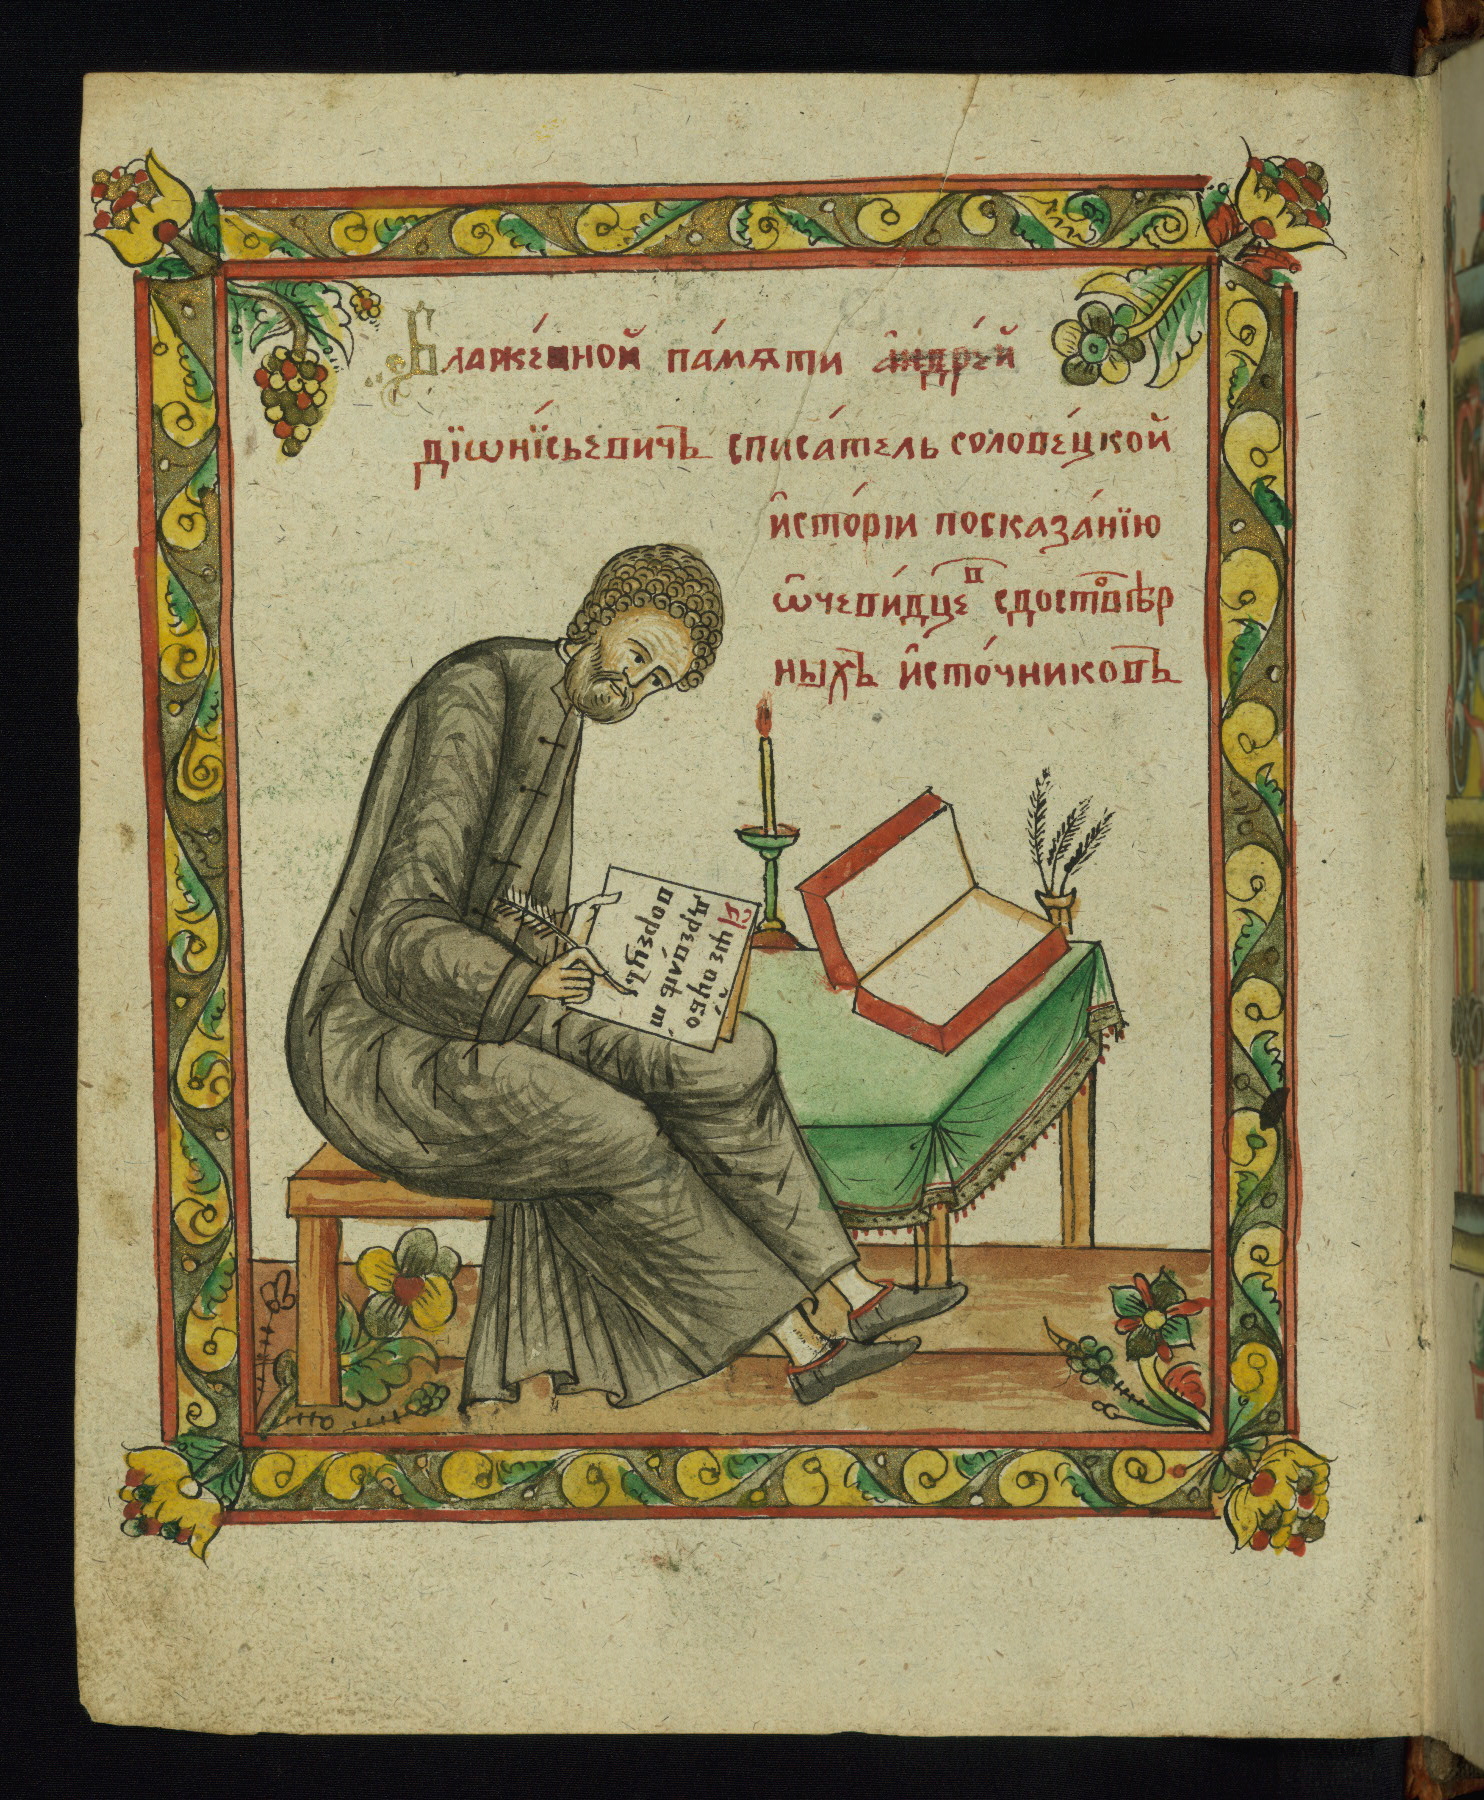 Блаже́нной па́мѧти а҆ндре́й
дїѡнїсьевичъ списа́тель солове́цкой
и҆сто́рїи посказа́нїю
ѡ҆чеви́дцевъ сдостовѣр
ныхъ и҆сто́чниковъ
а҆ще оубо
древлѣ т
ворецъ